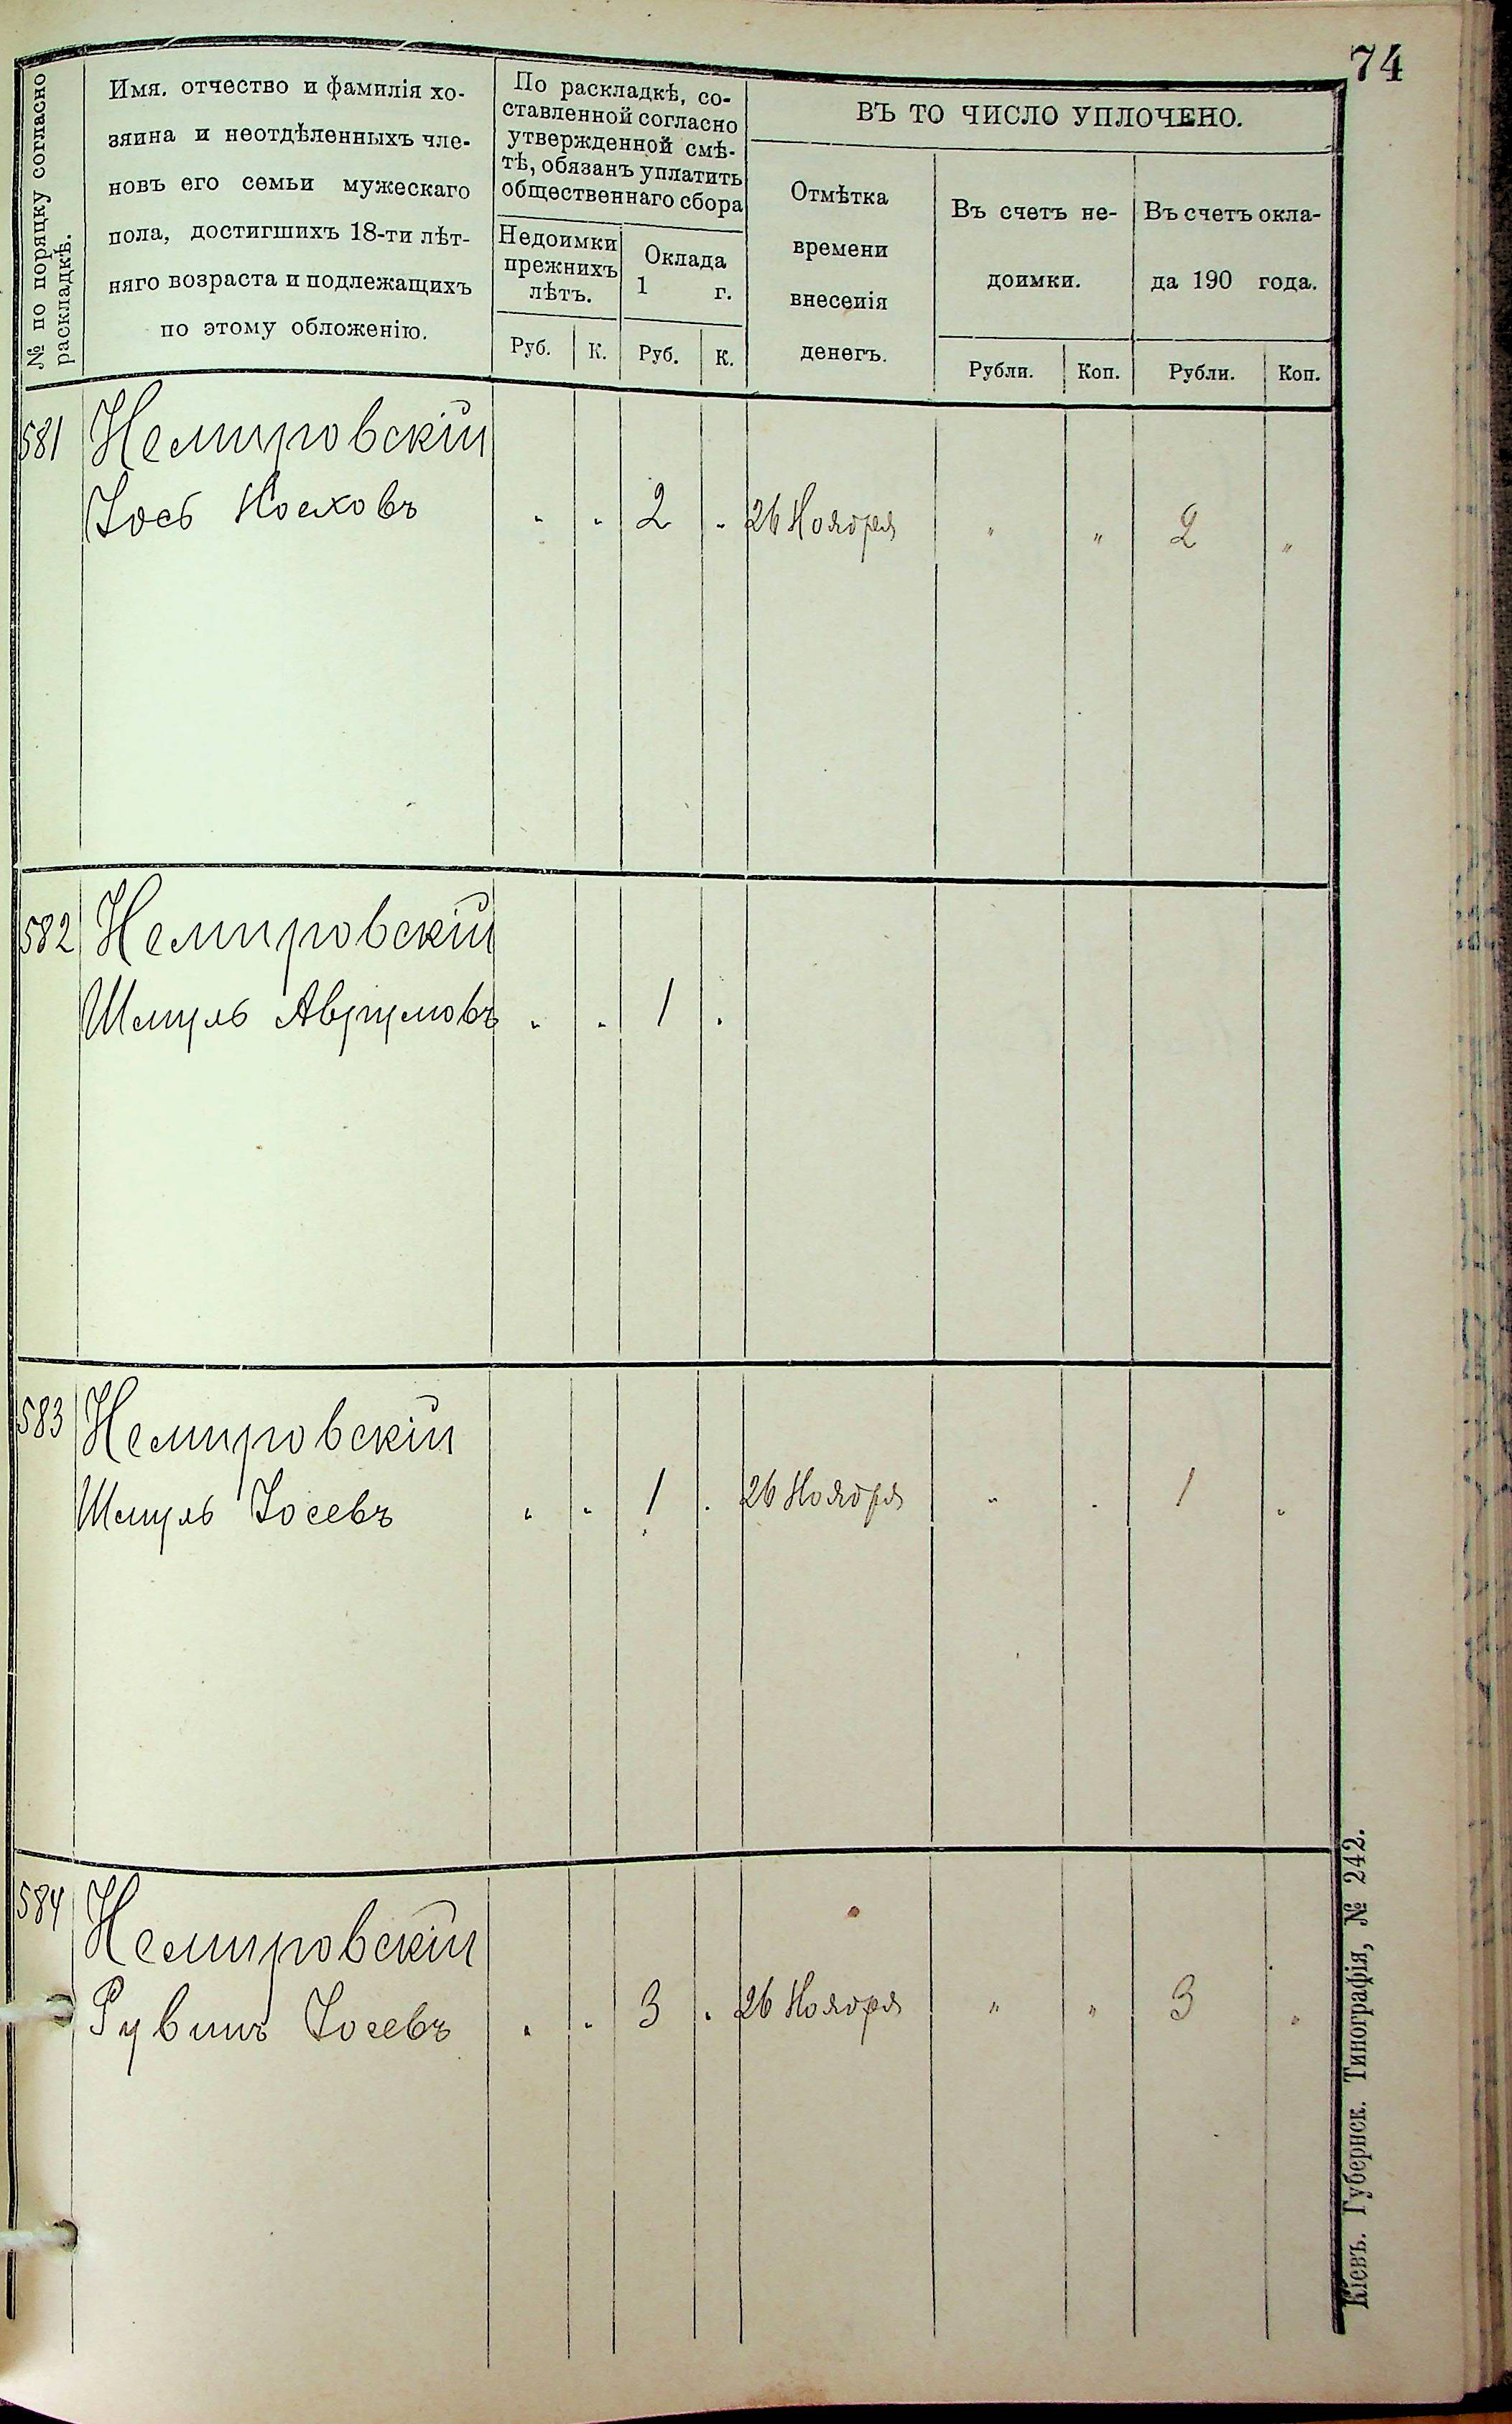 74
№ по порядку согласно
раскладкѣ.
Имя, отчество и фамилія хо-
зяина и неотдѣленныхъ чле-
новъ его семьи мужескаго
пола, достигшихъ 18-ти лѣт-
няго возраста и подлежащихъ
по этому обложенію.
По раскладкѣ, со-
ставленной согласно
утвержденной смѣ-
тѣ, обязанъ уплатить
общественнаго сбора
Недоимки
прежнихъ
лѣтъ.
Оклада
1 г.
Руб. К. Руб. К.
ВЪ ТО ЧИСЛО УПЛОЧЕНО.
Отмѣтка
времени
внесенія
денегъ.
Въ счетъ не-
доимки.
Въ счетъ окла-
да 190 года.
Рубли. Коп. Рубли. Коп.
581 Немировскій
Іось " " 2 " 26 Ноября " " 2 "
582 Немировскій
Шмуль Аврумовъ " " 1 "
583 Немировскій
Шмуль Іосевъ " " 1 " 26 Ноября " " 1 "
584 Немировскій
Рувинъ Іосевъ " " 3 " 26 Ноября " " 3 "
Кіевъ. Губернск. Типографія, № 242.